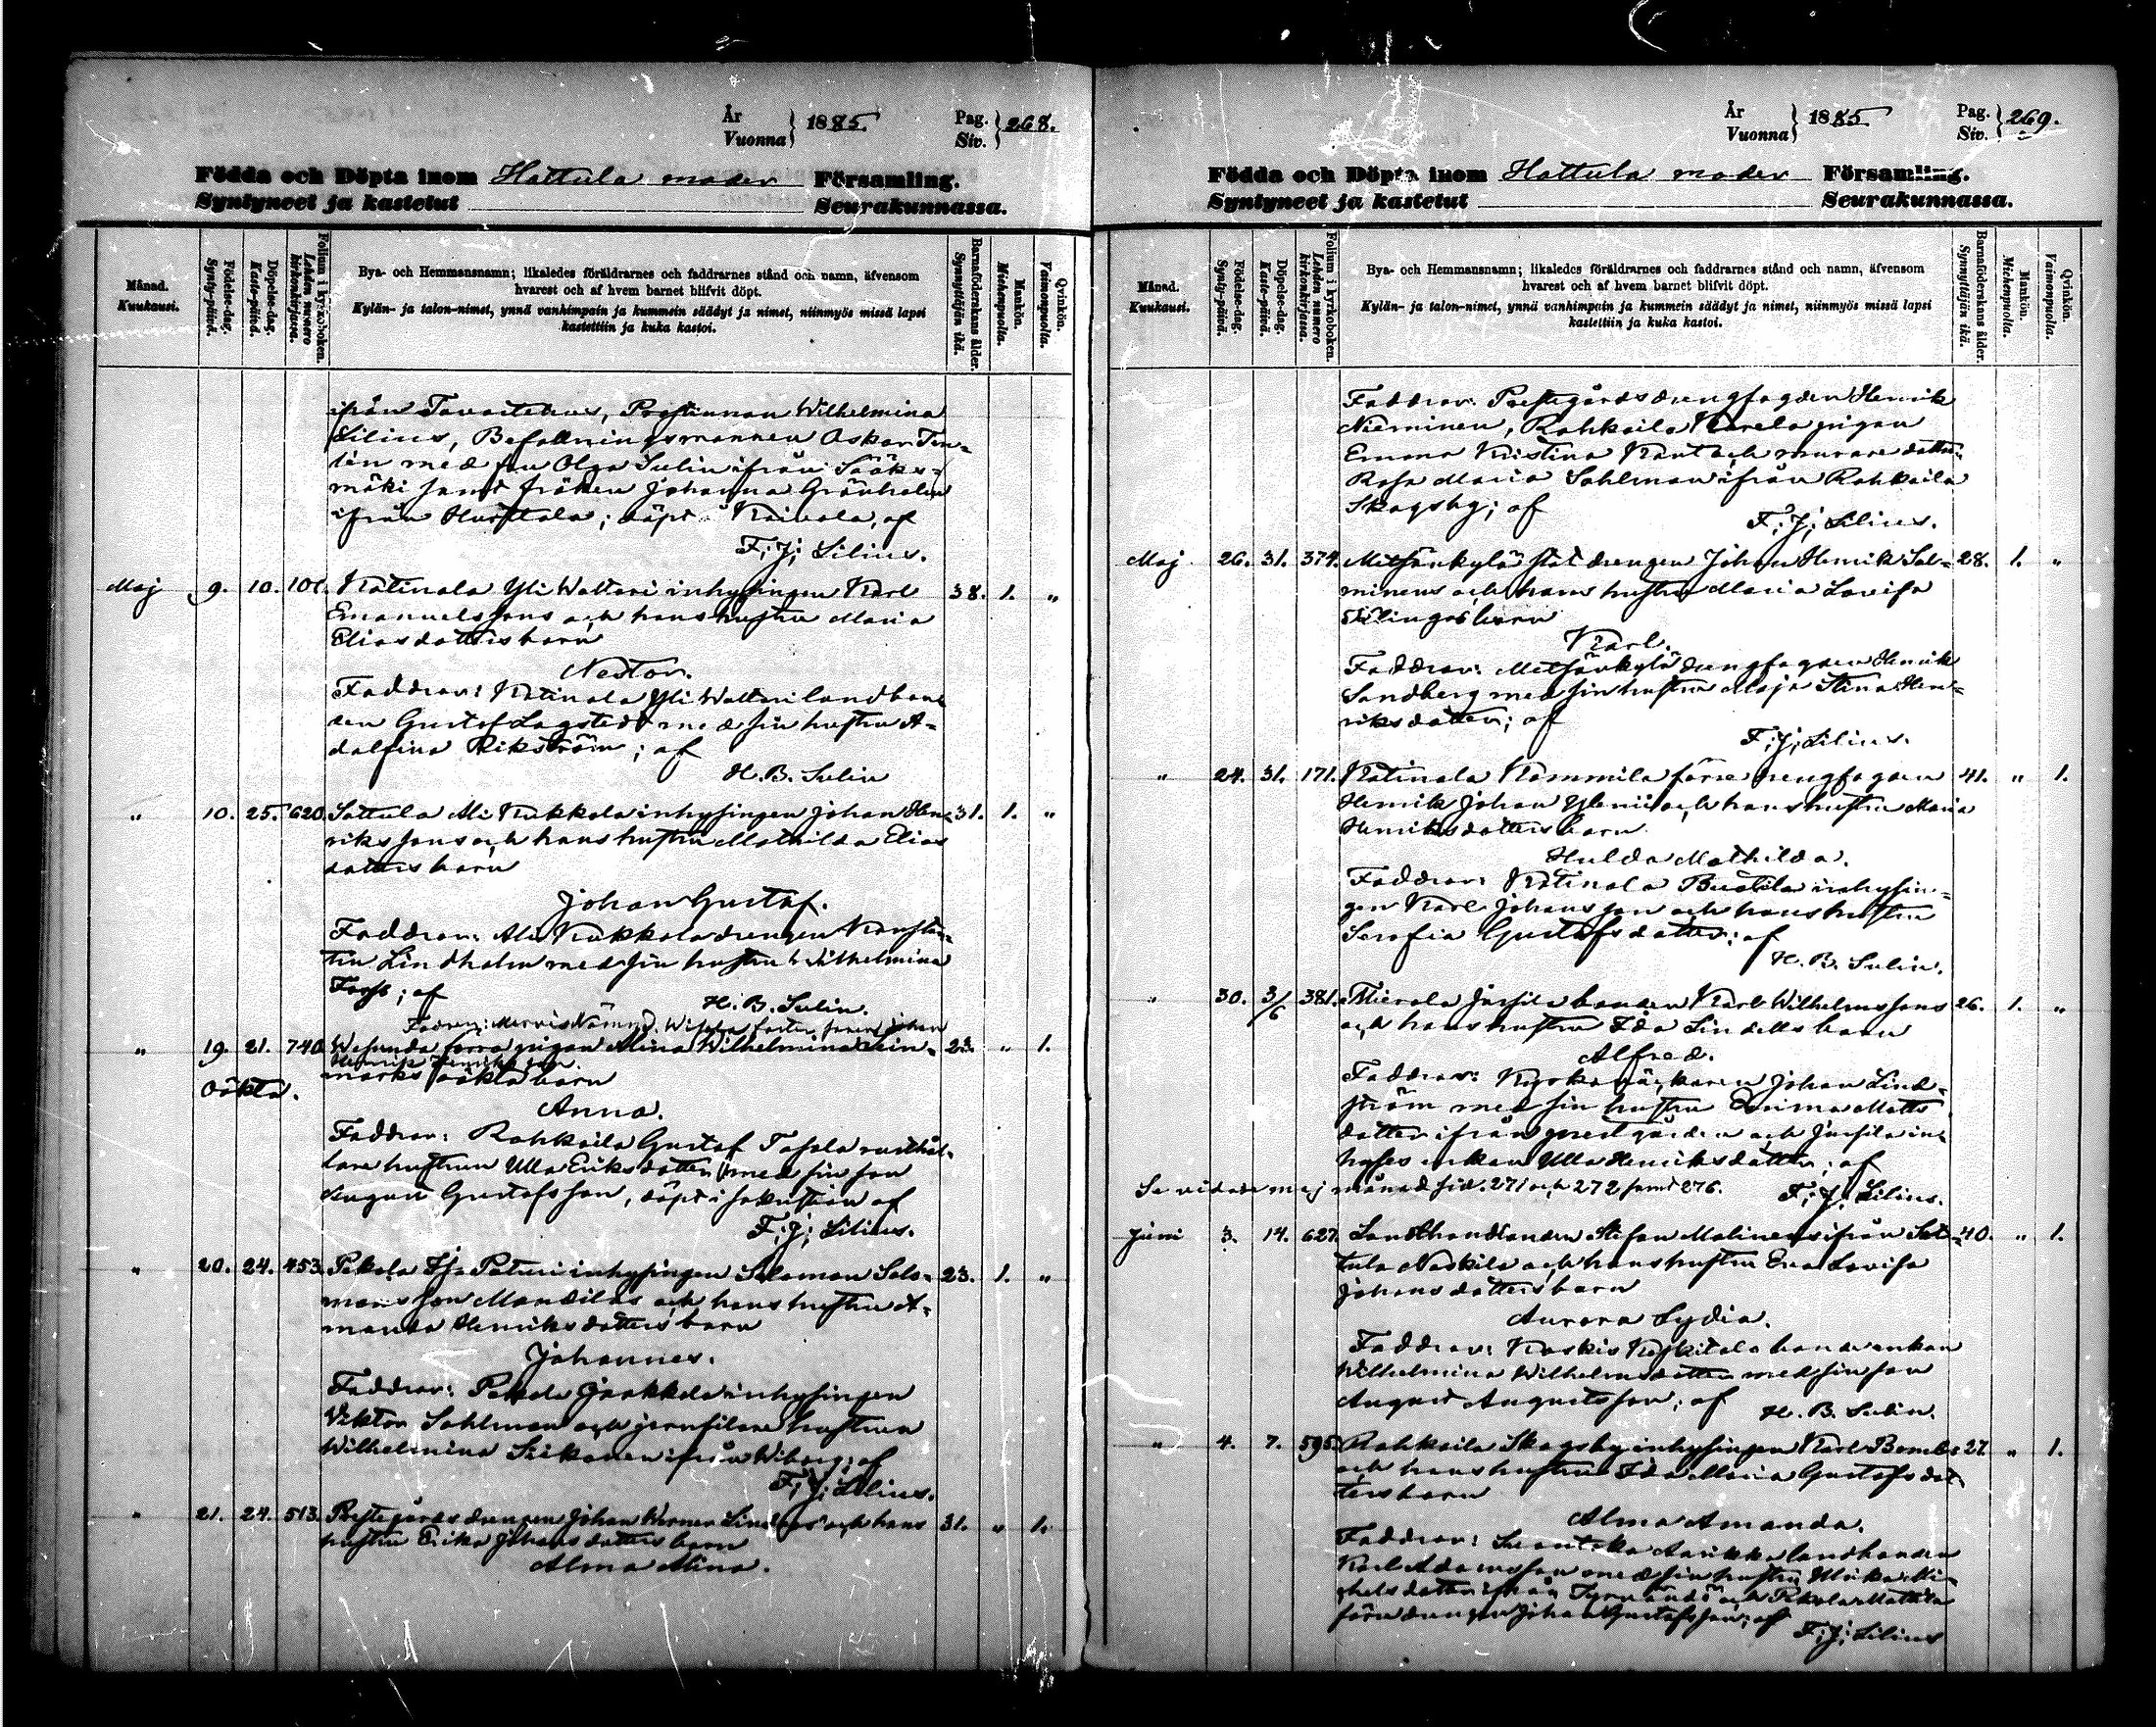 År
Vuonna } 1885.
Pag.
Siv. } 268.
Födda och Döpta inom Hattula moder Församling.
Syntyneet ja kastetut Seurakunnassa.
Månad.
Kuukausi.
Födelse-dag.
Synty-päivä.
Döpelse-dag.
Kaste-päivä.
Folium i kyrkoboken.
Lehden numero
kirkonkirjassa.
Bya- och Hemmansnamn; likaledes föräldrarnes och faddrarnes stånd och namn, äfvensom
hvarest och af hvem barnet blifvit döpt.
Kylän- ja talon-nimet, ynnä vanhimpain ja kummein säädyt ja nimet, niinmyös missä lapsi
kastettiin ja kuka kastoi.
Barnaföderskans ålder.
Synnyttäjän ikä.
Mankön.
Miehenpuolta.
Qvinkön.
Vaimonpuolta.
ifrån Tavastehus, Prostinnan Wilhelmina
Lilius, Befallningsmannen Oskar
med fru Olga Sulin ifrån Sääks-
mäki samt fröken Johanna Grönholm
ifrån Hurttala; döpt i af
F. J. Lilius.
Maj 9. 10. 101. Katinala Yli Waltari inhysingen Karl 38. 1. "
Emanuelssons och hans hustru Maria
Eliasdotters barn
Nestor.
Faddrar: Katinala Yli Waltari landbon-
den Gustaf Lagstedt med sin hustru A-
dolfina Rikström; af
H. B. Sulin
" 10. 25. 620. Sattula Ali Kukkola inhysingen Johan Hen- 31. 1. "
rikssons och hans hustru Mathilda Elias
dotters barn
Johan Gustaf.
Faddrar: Ali Kukkola drengen Konstan-
tin Lindholm med sin hustru Wilhelmina
Frost; af
H. B. Sulin.
Faddrar: Johan
" 19. 21. 740. Wesunda förra pigan Alina Wilhelmina Rein- 23. " 1.
Henrik Henriksson.
marks oäkta barn
Oäkta.
Anna.
Faddrar: Rahkoila Gustaf Tafala rusthål-
lare hustrun Ulla Eriksdotter med sin son
August Gustafsson, döpt i sakristian af
F. J. Lilius.
" 20. 24. 453. Pekola Iso Paturi inhysingen Salomon Salo- 23. 1. "
monsson Mandilas och hans hustru A-
manda Henriksdotters barn
Johannes.
Faddrar: Pekola Jaakkola inhysingen
Viktor Sahlman och jernfilare hustrun
Wilhelmina Siikanen ifrån Wiborg; af
F. J. Lilius.
" 21. 24. 513. Prestegårds drengen Johan Werner Lindfors och hans 31. " 1.
hustru Erika Johansdotters barn
Alma Alina.
År
Vuonna } 1885
Pag.
Siv. } 269.
Födda och Döpta inom Hattula moder Församling.
Syntyneet ja kastetut Seurakunnassa.
Månad.
Kuukausi.
Födelse-dag.
Synty-päivä.
Döpelse-dag.
Kaste-päivä.
Folium i kyrkoboken.
Lehden numero
kirkonkirjassa.
Bya- och Hemmansnamn; likaledes föräldrarnes och faddrarnes stånd och namn, äfvensom
hvarest och af hvem barnet blifvit döpt.
Kylän- ja talon-nimet, ynnä vanhimpain ja kummein säädyt ja nimet, niinmyös missä lapsi
kastettiin ja kuka kastoi.
Barnaföderskans ålder.
Synnyttäjän ikä.
Mankön.
Miehenpuolta.
Qvinkön.
Vaimonpuolta.
Faddrar: Prestegårds drengfogden Henrik
Nieminen, Rahkoila Karela pigan
Emma Kristina Kant och murare dottern
Rosa Maria Sahlman ifrån Rahkoila
Skogsby; af
F. J. Lilius.
Maj 26. 31. 374. Metsänkylä statdrengen Johan Henrik Sal- 28. 1. "
minens och hans hustru Maria Lovisa
barn
Karl.
Faddrar: Metsänkylä drengfogden Henrik
Sandberg med sin hustru Maja Stina Hen-
riksdotter; af
F. J. Lilius.
" 24. 31. 171. Katinala Kömmilä förre drengfogden 41. " 1.
Henrik Johan och hans hustru Maria
Henriksdotters barn
Hulda Mathilda.
Faddrar: Katinala inhysin-
gen Karl Johansson och hans hustru
Serafia Gustafsdotter; af
H. B. Sulin.
" 30. 3/6 381. Mierola Jussila bonden Karl Wilhelmssons 26. 1. "
och hans hustru Ida Lindells barn
Alfred.
Faddrar: Kyrkoväktaren Johan Lind-
ström med sin hustru Matts
dotter ifrån prestgården och Jussila in-
hyses enkan Ulla Henriksdotter; af
F. J. Lilius.
Se vidare maj månad sid. 271 och 272 samt 276.
Juni 3. 14. 627. Landthandlanden Stefan Malinens ifrån Sat- 40. " 1.
tula Naskila och hans hustru Eva Lovisa
Johansdotters barn
Aurora Lydia.
Faddrar: Koskis Koskitalo bonde enkan
Wilhelmina Wilhelmsdotter med sin son
August Augustsson; af
H. B. Sulin.
" 4. 7. 595. Rahkoila Skogsby inhysingen Karl Bombs 27. " 1.
och hans hustru Ida Maria Gustafsdot-
ters barn
Alma Amanda.
Faddrar: landbonden
Karl Adamsson med sin hustru Ulrika Mi-
chelsdotter ifrån Tyrväntö och Pekola Mattila
förre drengen Johan Gustafsson; af
F. J. Lilius